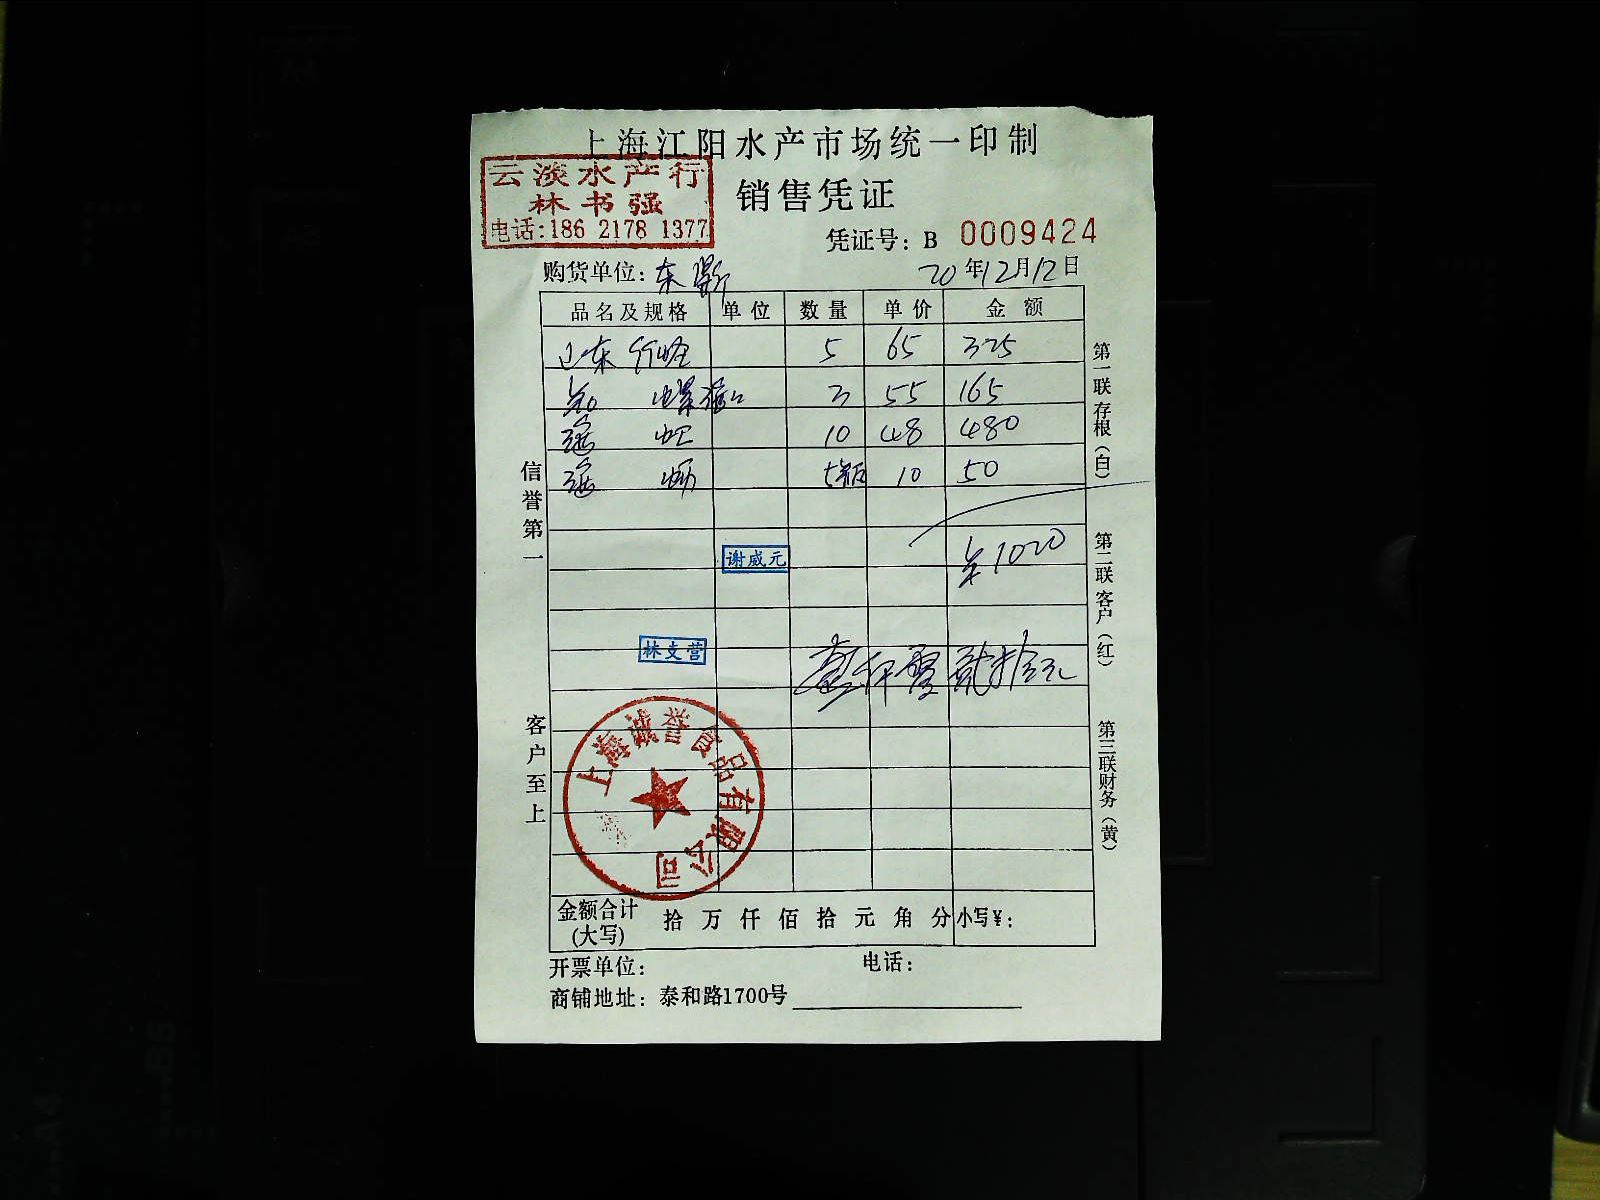 上海江阳水产市场统一印制
云淡水产行
林书强
电话:186 2178 1377
销售凭证
凭证号: B 0009424
购货单位: 东
20年12月12日
品名及规格 单位 数量 单价 金额
山东 5 65 325
3 55 165
10 48 480
5瓶 10 50
谢威元
¥1020
林支营
壹仟零贰拾元
上海诚誉食品有限公司
金额合计(大写) 拾 万 仟 佰 拾 元 角 分 小写¥:
开票单位: 电话:
商铺地址: 泰和路1700号
信誉第一
客户至上
第一联 存根(白)
第二联 客户(红)
第三联 财务(黄)